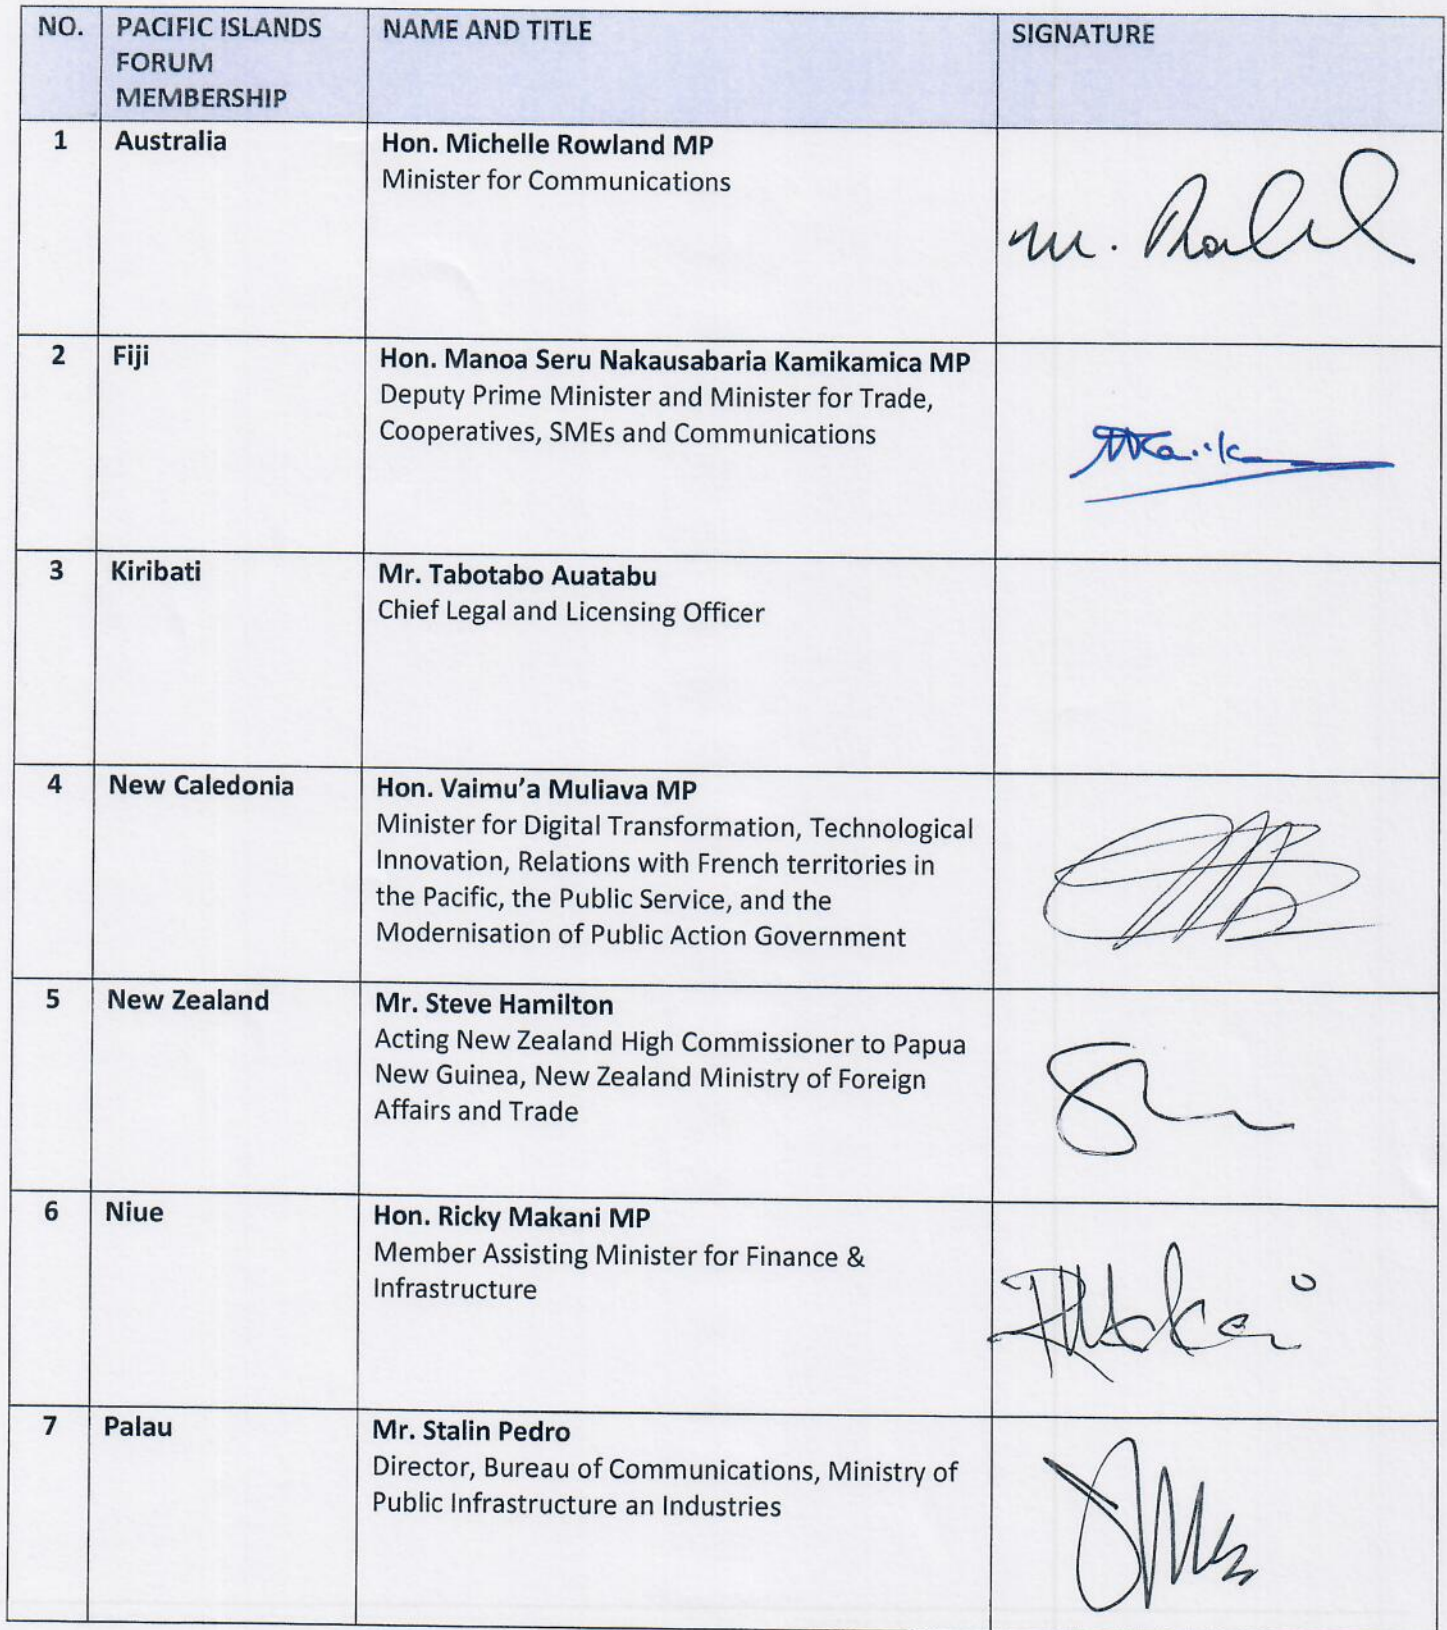 NO.
PACIFIC ISLANDS
FORUM
MEMBERSHIP
NAME AND TITLE
SIGNATURE
1
Australia
Hon. Michelle Rowland MP
Minister for Communications
2
Fiji
Hon. Manoa Seru Nakausabaria Kamikamica MP
Deputy Prime Minister and Minister for Trade,
Cooperatives, SMEs and Communications
3
Kiribati
Mr. Tabotabo Auatabu
Chief Legal and Licensing Officer
4
New Caledonia
Hon. Vaimu’a Muliava MP
Minister for Digital Transformation, Technological
Innovation, Relations with French territories in
the Pacific, the Public Service, and the
Modernisation of Public Action Government
5
New Zealand
Mr. Steve Hamilton
Acting New Zealand High Commissioner to Papua
New Guinea, New Zealand Ministry of Foreign
Affairs and Trade
6
Niue
Hon. Ricky Makani MP
Member Assisting Minister for Finance &
Infrastructure
7
Palau
Mr. Stalin Pedro
Director, Bureau of Communications, Ministry of
Public Infrastructure an Industries